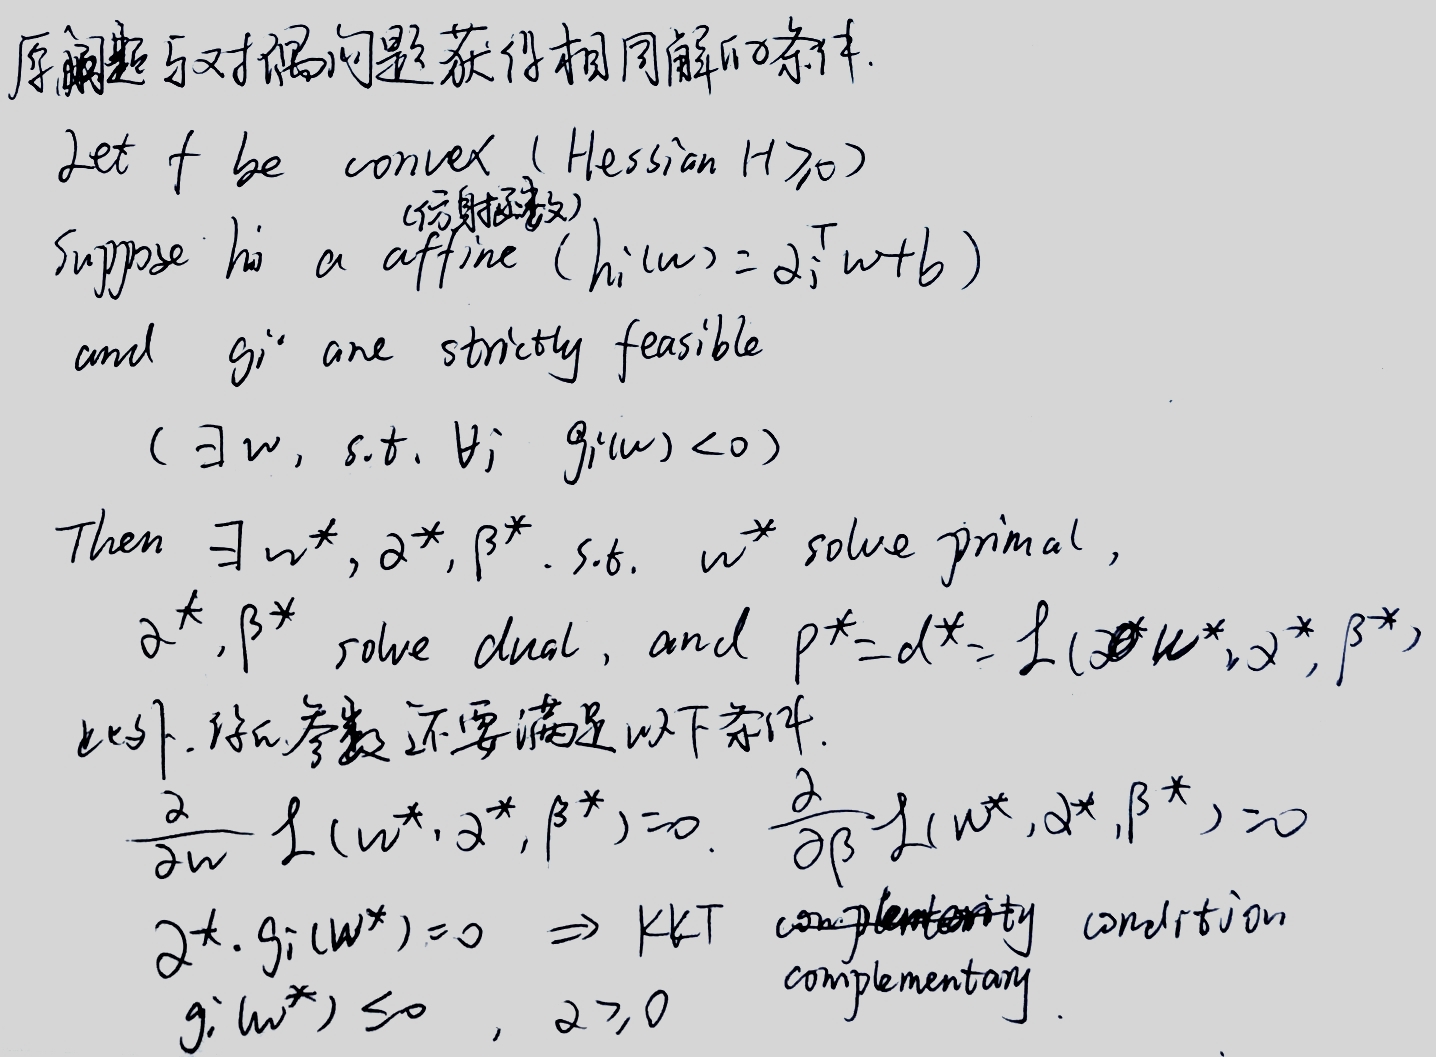 原问题与对偶问题获得相同解的条件.
Let f be convex (Hessian H⩾0)
(仿射函数)
Suppose hi a affine (hi(w) = αiᵀw+b)
and gi are strictly feasible
(∃w, s.t. ∀i gi(w) <0)
Then ∃ w*, α*, β*. s.t. w* solve primal,
α*, β* solve dual, and p*=d*= L(w*, α*, β*)
此外. 参数还要满足以下条件.
∂/∂w L(w*, α*, β*)=0. ∂/∂β L(w*, α*, β*)=0
α*·gi(w*)=0 ⇒ KKT condition
complementary.
gi(w*) ≤0 , α⩾0